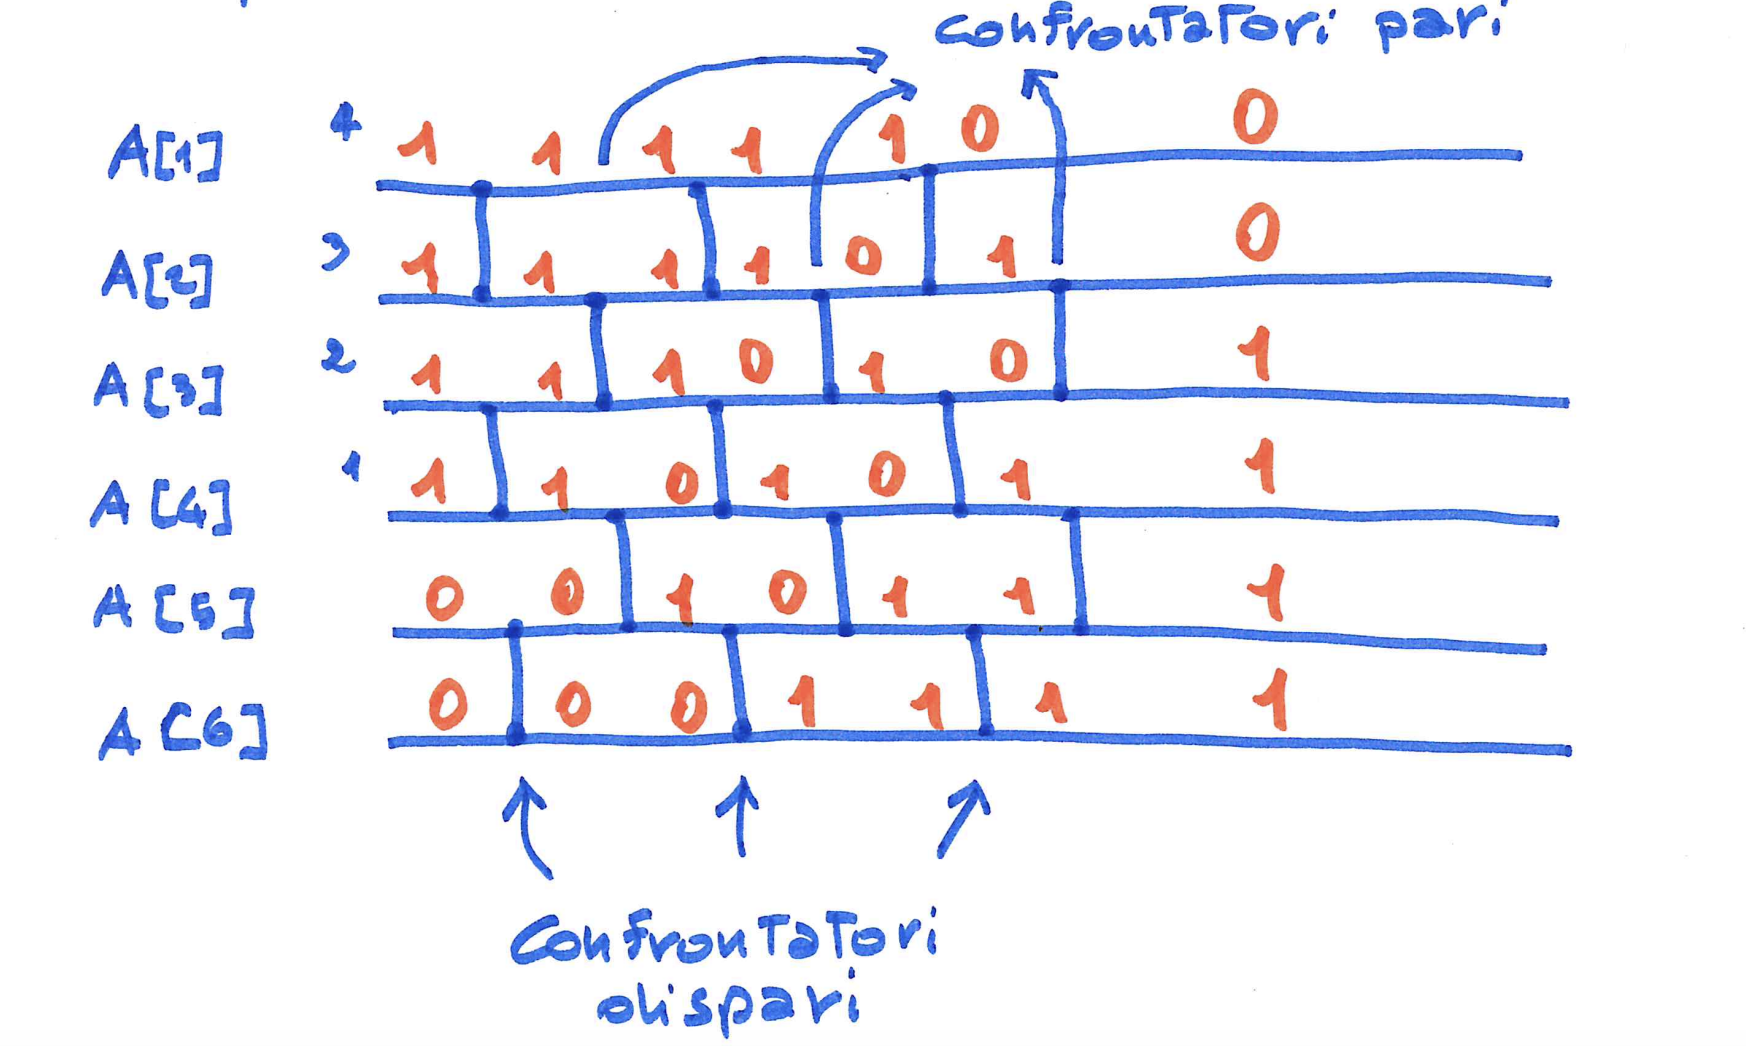 confrontatori pari
A[1] 4 1 1 1 1 1 0 0
A[2] 3 1 1 1 1 0 1 0
A[3] 2 1 1 1 0 1 0 1
A[4] 1 1 1 0 1 0 1 1
A[5] 0 0 1 0 1 1 1
A[6] 0 0 0 1 1 1 1
Confrontatori
dispari